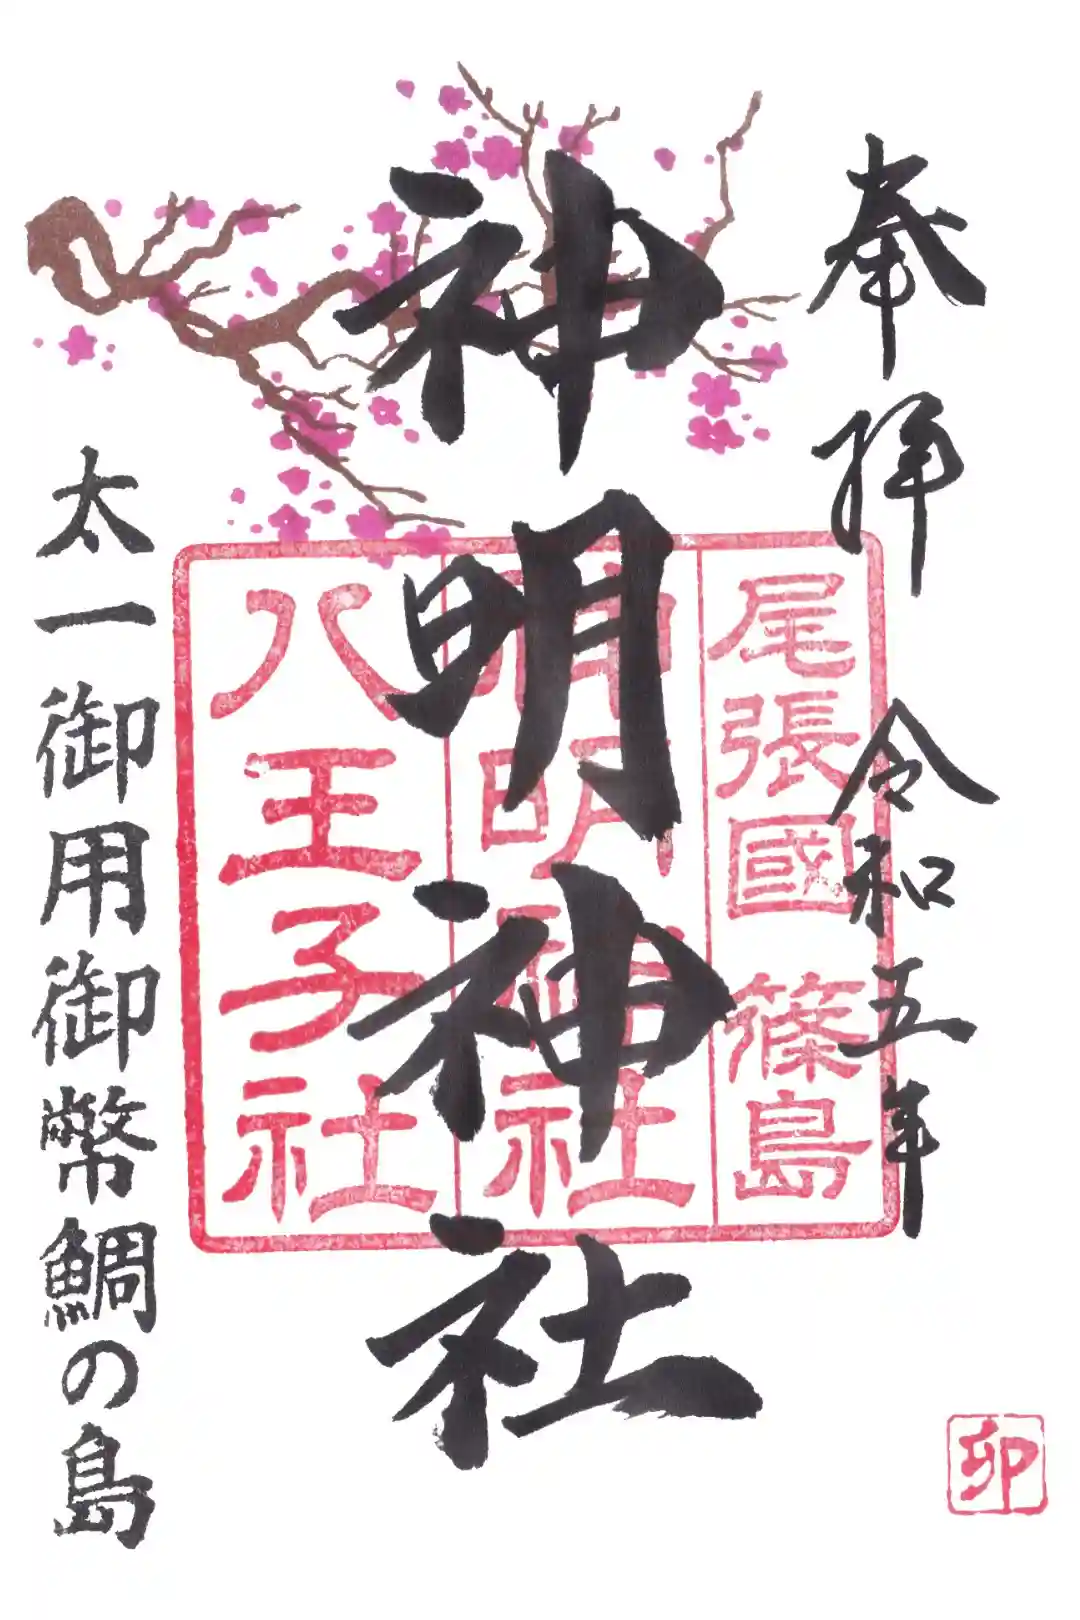 奉拝
令和五年
尾張國 篠島
神明神社
八王子社
神明神社
太一御用御幣鯛の島
卯